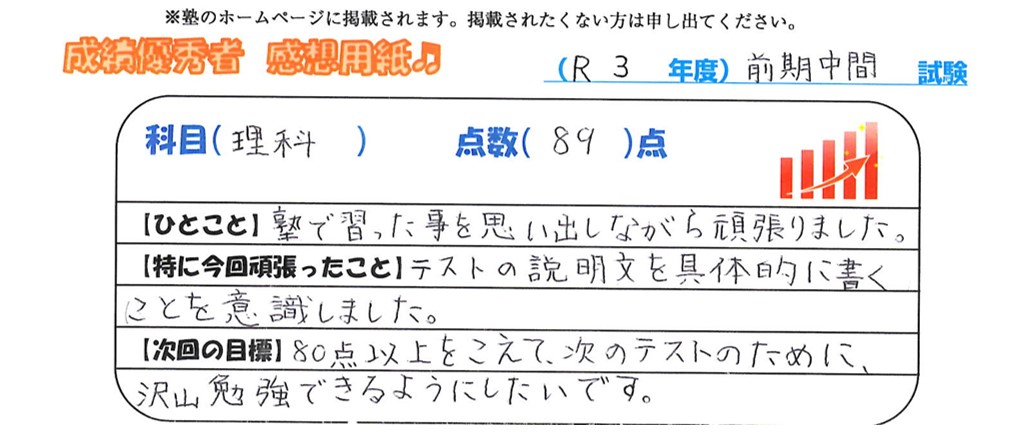 ※塾のホームページに掲載されます。掲載されたくない方は申し出てください。
成績優秀者 感想用紙♫
(R 3 年度) 前期中間 試験
科目(理科 ) 点数( 89 )点
【ひとこと】塾で習った事を思い出しながら頑張りました。
【特に今回頑張ったこと】テストの説明文を具体的に書く
ことを意識しました。
【次回の目標】80点以上をこえて、次のテストのために、
沢山勉強できるようにしたいです。